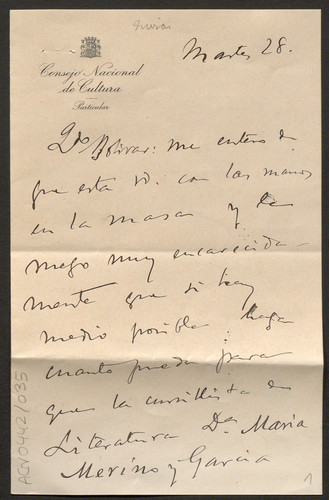 Martes 28.
Consejo Nacional
de Cultura
Particular
Qdo Bolívar: me entero de
que esta vd. con las manos
en la masa y le
ruego muy encarecida-
mente que si hay
medio posible haga
cuanto pueda para
que la cursillista de
Literatura Dª María
Merino y García
ACN0442/035
1